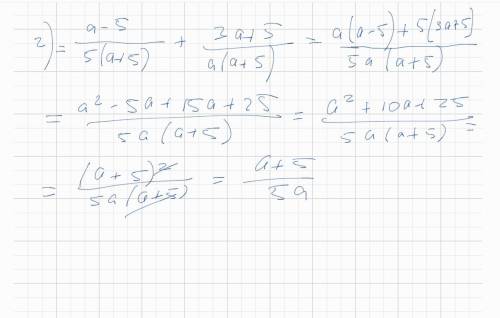 2) = (a-5)/(5(a+5)) + (3a+5)/(a(a+5)) = (a(a-5)+5(3a+5))/(5a(a+5))
= (a²-5a+15a+25)/(5a(a+5)) = (a²+10a+25)/(5a(a+5)) =
= (a+5)²/(5a(a+5)) = (a+5)/(5a)